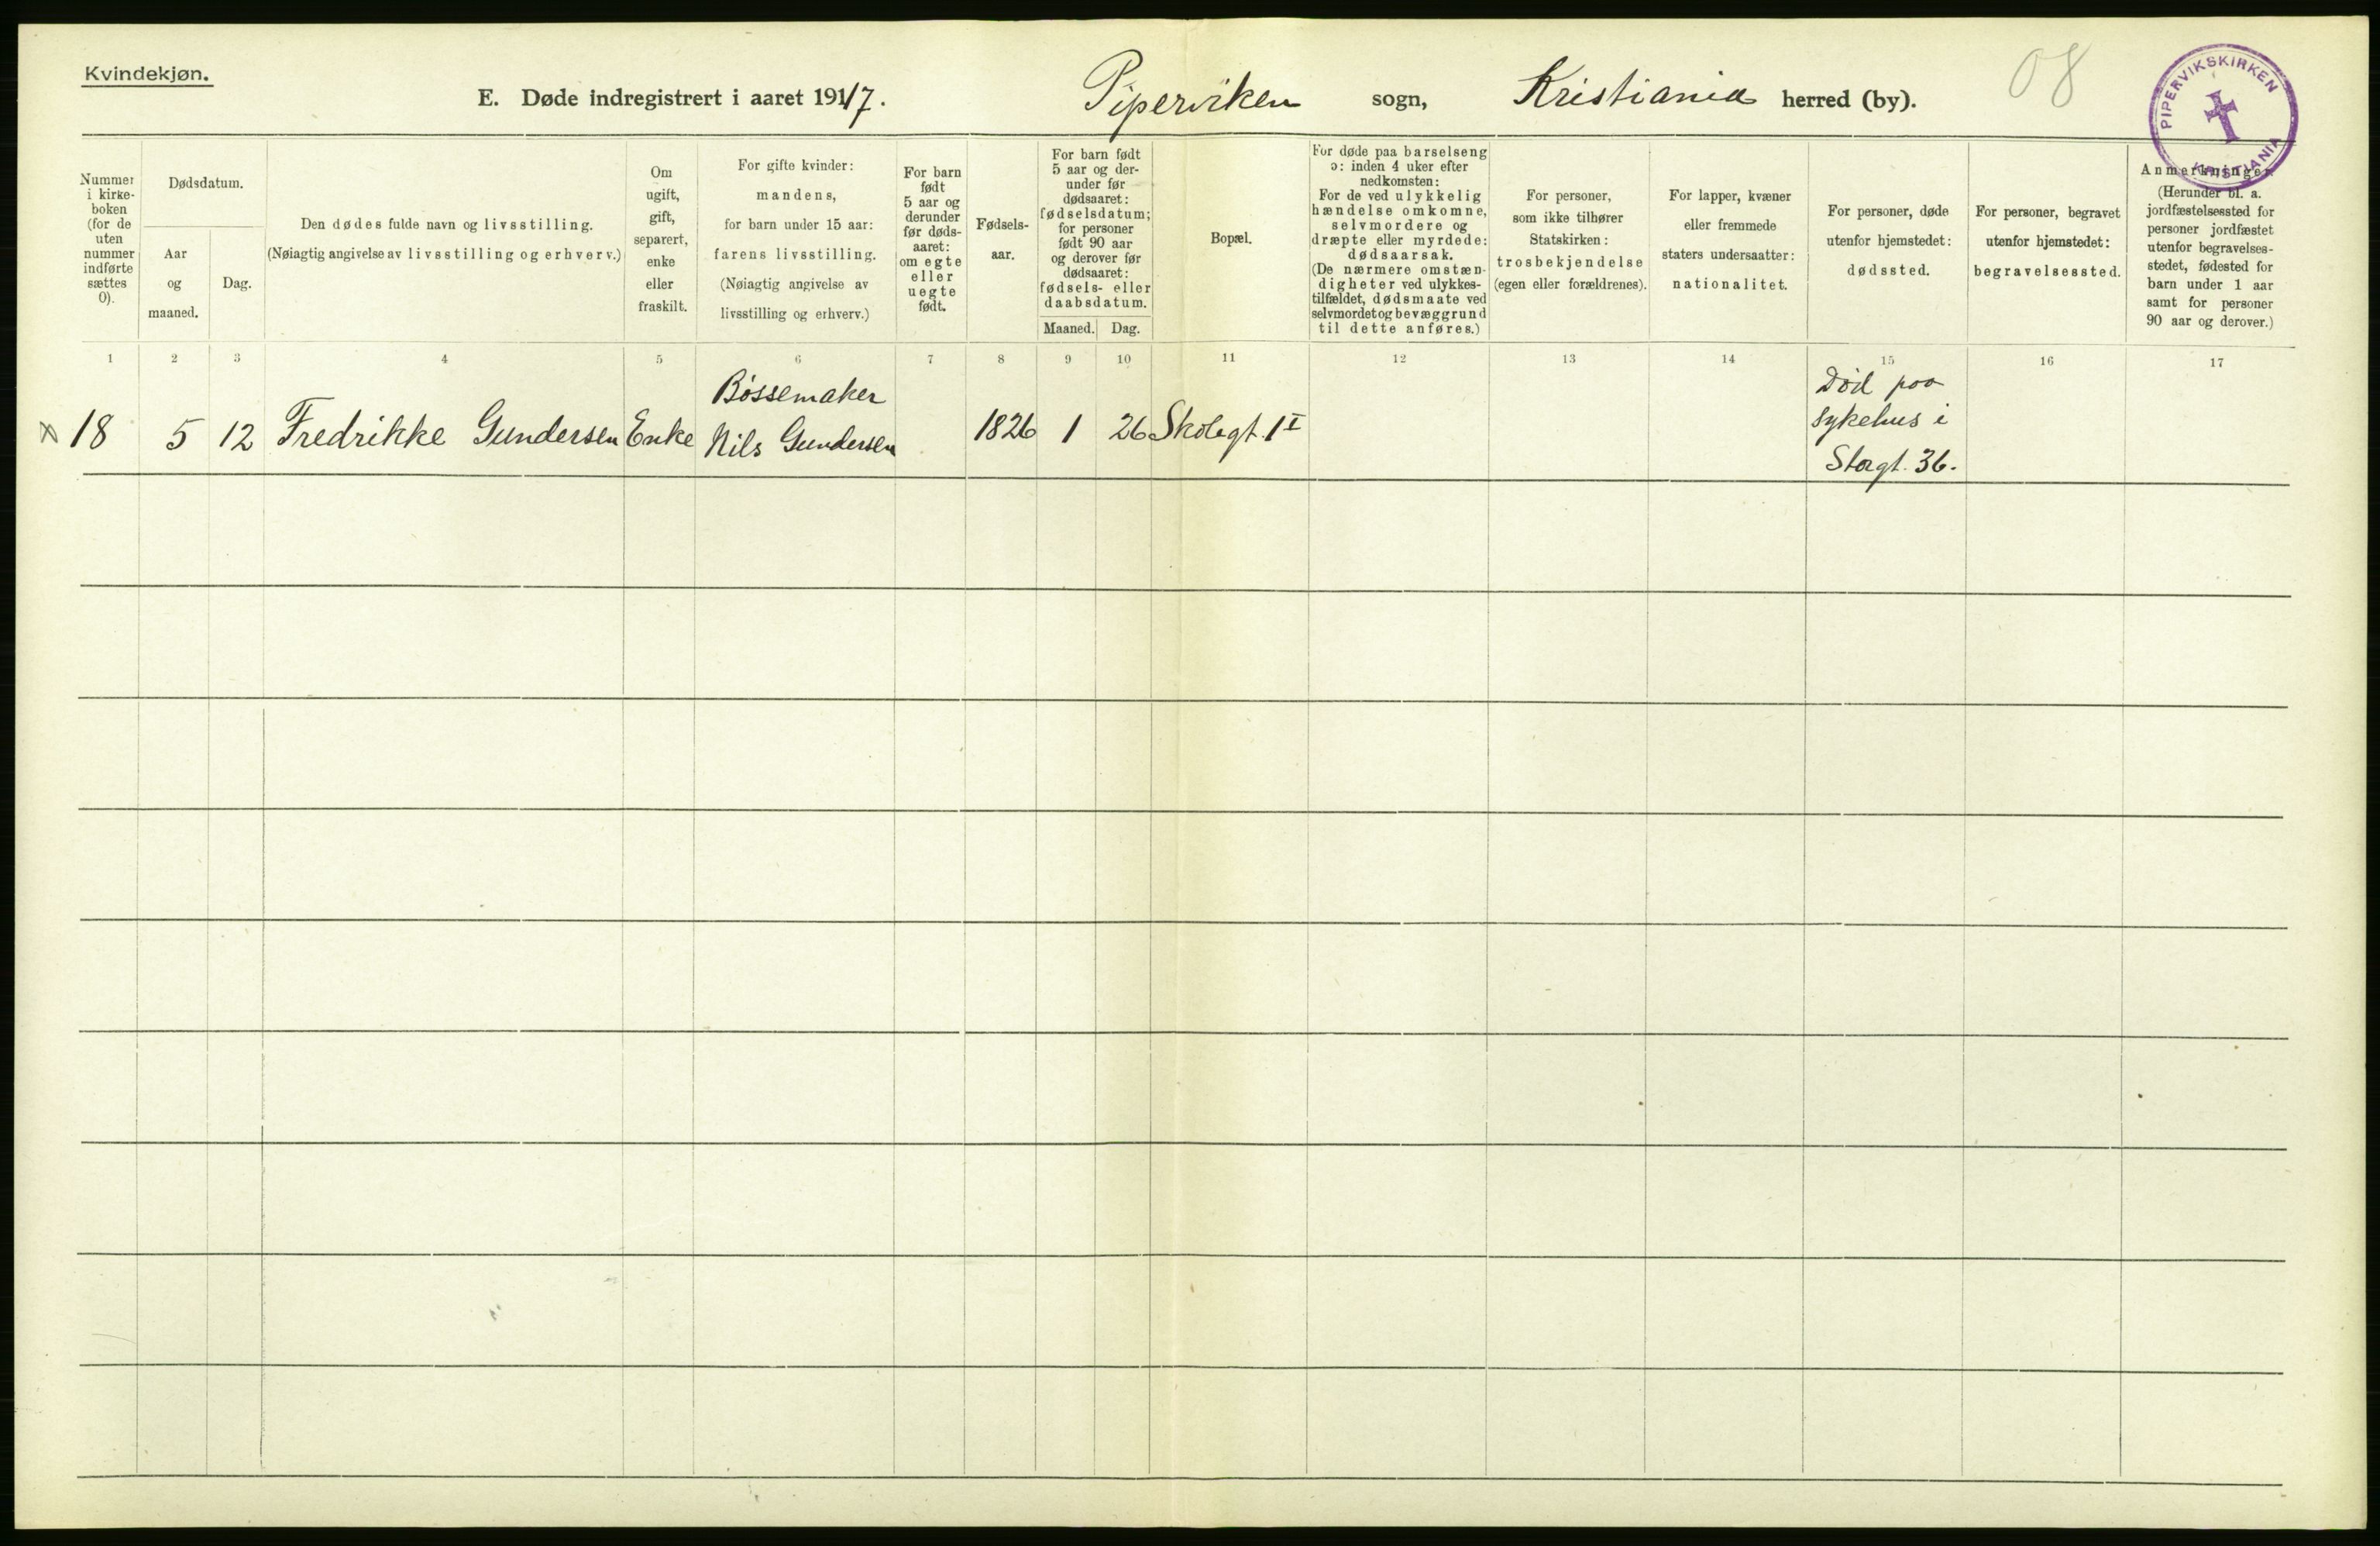 Kvindekjøn.
E. Døde indregistrert i aaret 1917. Piperviken sogn, Kristiania herred (by).
08
PIPERVIKSKIRKEN
KRISTIANIA
Nummer
i kirke-
boken
(for de
uten
nummer
indførte
sættes
0).
Dødsdatum.
Aar
og
maaned.
Dag.
Den dødes fulde navn og livsstilling.
(Nøiagtig angivelse av livsstilling og erhverv.)
Om
ugift,
gift,
separert,
enke
eller
fraskilt.
For gifte kvinder:
mandens,
for barn under 15 aar:
farens livsstilling.
(Nøiagtig angivelse av
livsstilling og erhverv.)
For barn
født
5 aar og
derunder
før døds-
aaret:
om egte
eller
uegte
født.
Fødsels-
aar.
For barn født
5 aar og der-
under før
dødsaaret:
fødselsdatum;
for personer
født 90 aar
og derover før
dødsaaret:
fødsels- eller
daabsdatum.
Maaned. Dag.
Bopæl.
For døde paa barselseng
ɔ: inden 4 uker efter
nedkomsten:
For de ved ulykkelig
hændelse omkomne,
selvmordere og
dræpte eller myrdede:
dødsaarsak.
(De nærmere omstæn-
digheter ved ulykkes-
tilfældet, dødsmaate ved
selvmordet og bevæggrund
til dette anføres.)
For personer,
som ikke tilhører
Statskirken:
trosbekjendelse
(egen eller forældrenes).
For lapper, kvæner
eller fremmede
staters undersaatter:
nationalitet.
For personer, døde
utenfor hjemstedet:
dødssted.
For personer, begravet
utenfor hjemstedet:
begravelsessted.
Anmerkninger.
(Herunder bl. a.
jordfæstelsessted for
personer jordfæstet
utenfor begravelses-
stedet, fødested for
barn under 1 aar
samt for personer
90 aar og derover.)
1 2 3 4 5 6 7 8 9 10 11 12 13 14 15 16 17
Bössemaker
Död paa
sykehus i
18 5 12 Fredrikke Gundersen Enke Nils Gundersen 1826 1 26 Skolegt. 1 I
Storgt. 36.